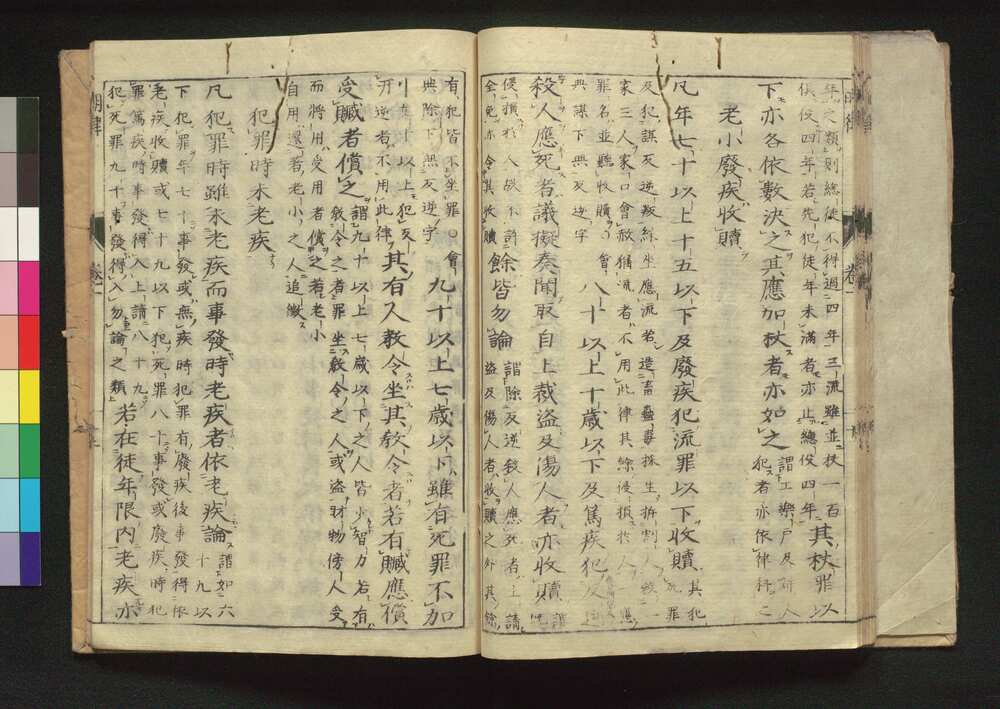 年之類則總徒不得過四年三流雖並杖一百
俱役四年若先犯徒年未滿者亦止總役四年
其杖罪以
下亦各依數決之其應加杖者亦如之
謂工樂戶及婦人
犯者亦依律科之
老小廢疾收贖
凡年七十以上十五以下及廢疾犯流罪以下收贖
其犯
罪
及犯謀反逆叛緣坐應流若造畜蠱毒採生拆割人殺一
家三人家口會赦猶流者不用此律其餘侵損於人一應
罪名並聽收贖○會
典謀下無反逆字
八十以上十歲以下及篤疾犯反逆
殺人應死者議擬奏聞取自上裁盜及傷人者亦收贖
謂
侵損於人故不許
全免亦令其收贖
餘皆勿論
謂除反逆殺人應死者上請
盜及傷人者收贖之外其餘
有犯皆不坐罪○會
典除下無反逆字
九十以上七歲以下雖有死罪不加
刑
九十以上犯反
逆者不用此律
其有人教令坐其教令者若有贓應償
受贓者償之
謂九十以上七歲以下之人皆少智力若有
教令之者罪坐教令之人或盜財物傍人受
而將用受用者償之若老小
自用還著老小之人追徵
犯罪時未老疾
凡犯罪時雖未老疾而事發時老疾者依老疾論
謂如六
十九以
下犯罪年七十事發或無疾時犯罪有廢疾後事發得依
老疾收贖或七十九以下犯死罪八十事發或廢疾時犯
罪篤疾時事發得入上請八十九
犯死罪九十事發得入勿論之類
若在徒年限內老疾亦